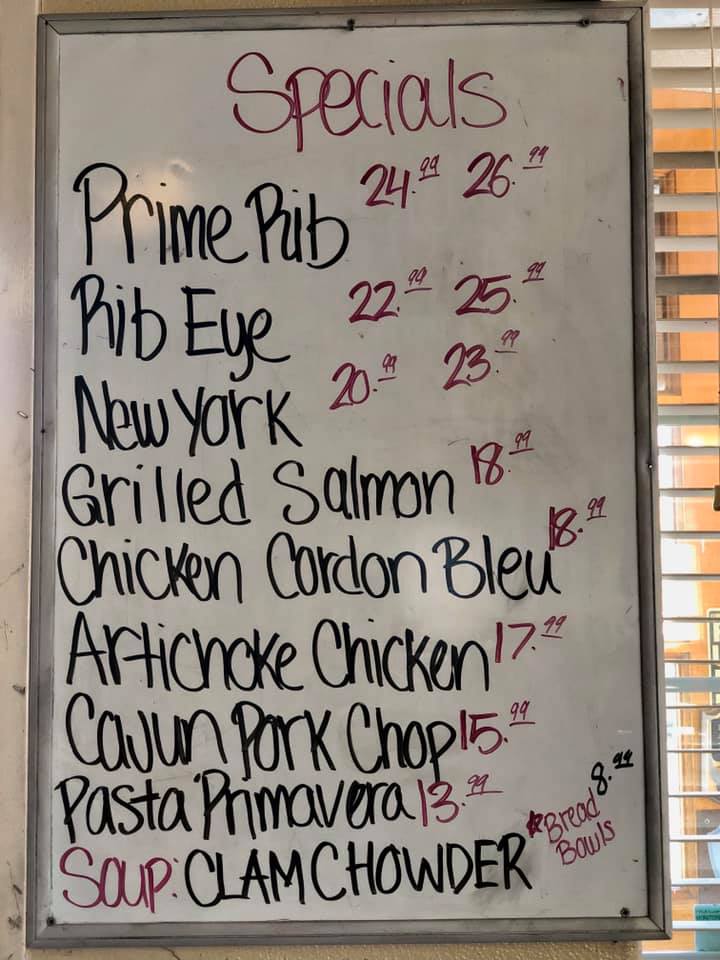 Specials
Prime Rib 24.99 26.99
Rib Eye 22.99 25.99
New York 20.99 23.99
Grilled Salmon 18.99
Chicken Cordon Bleu 18.99
Artichoke Chicken 17.99
Cajun Pork Chop 15.99
Pasta Primavera 13.99
Soup: CLAM CHOWDER *Bread Bowls 8.99